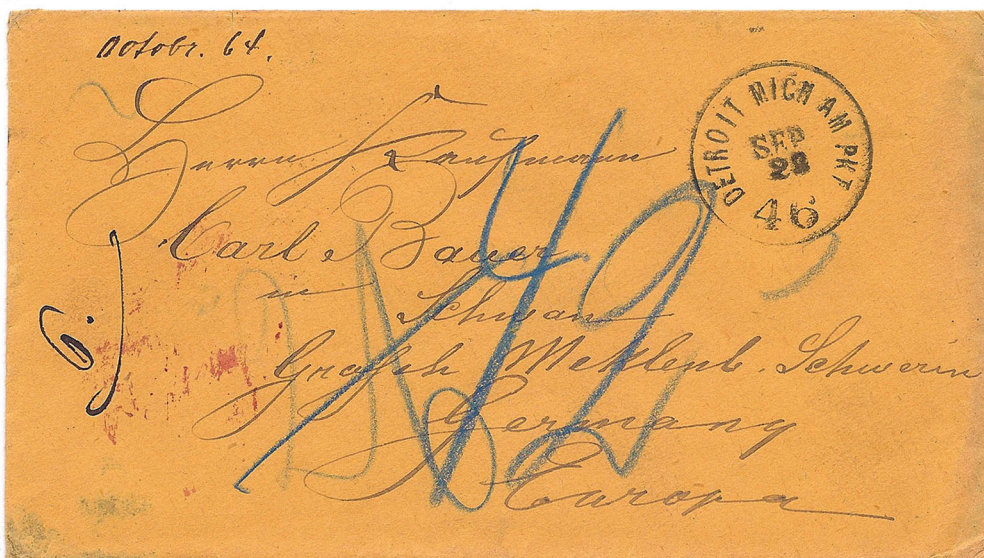 Octobr. 64.
DETROIT MICH AM PKT
SEP
28
46
Herrn Kaufmann
Carl Bauer
in
Schwaan
Großh Meklenb. Schwerin
Germany
Europa
6.